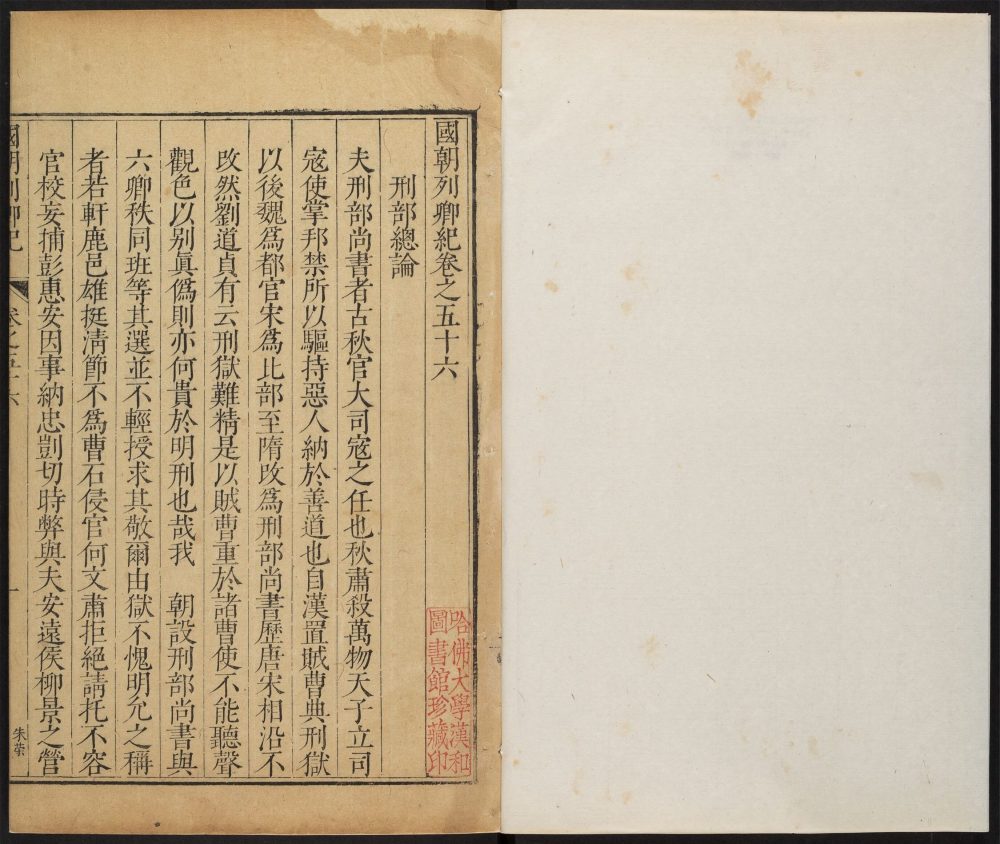 國朝列卿紀卷之五十六
刑部總論
夫刑部尚書者古秋官大司寇之任也秋肅殺萬物天子立司
寇使掌邦禁所以驅持惡人納於善道也自漢置賊曹典刑獄
以後魏爲都官宋爲比部至隋改爲刑部尚書歷唐宋相沿不
改然劉道貞有云刑獄難精是以賊曹重於諸曹使不能聽聲
觀色以别眞僞則亦何貴於明刑也哉我 朝設刑部尚書與
六卿秩同班等其選並不輕授求其敬爾由獄不愧明允之稱
者若軒鹿邑雄挺清節不爲曹石侵官何文肅拒絕請托不容
官校妄捕彭惠安因事納忠剴切時弊與夫安遠侯柳景之營
國朝列卿紀 卷之五十六 一
朱縈
哈佛大學漢和
圖書館珍藏印